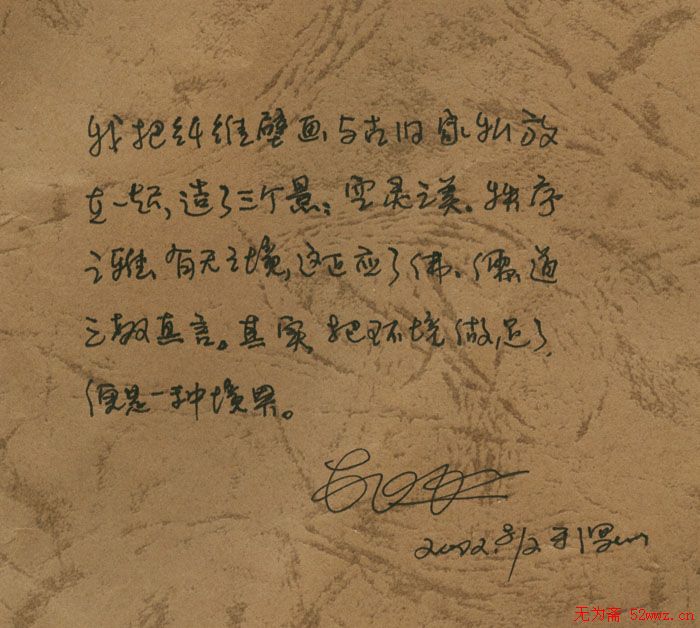 我把纤维壁画、与古旧家私放
在一起，造了三个景：空灵之美、秩序
之雅、有无之境，这正应了佛、儒、道
三教真言。其实，把环境做足了，
便是一种境界。
2002.8/2 于
无为斋 52wwz.cn